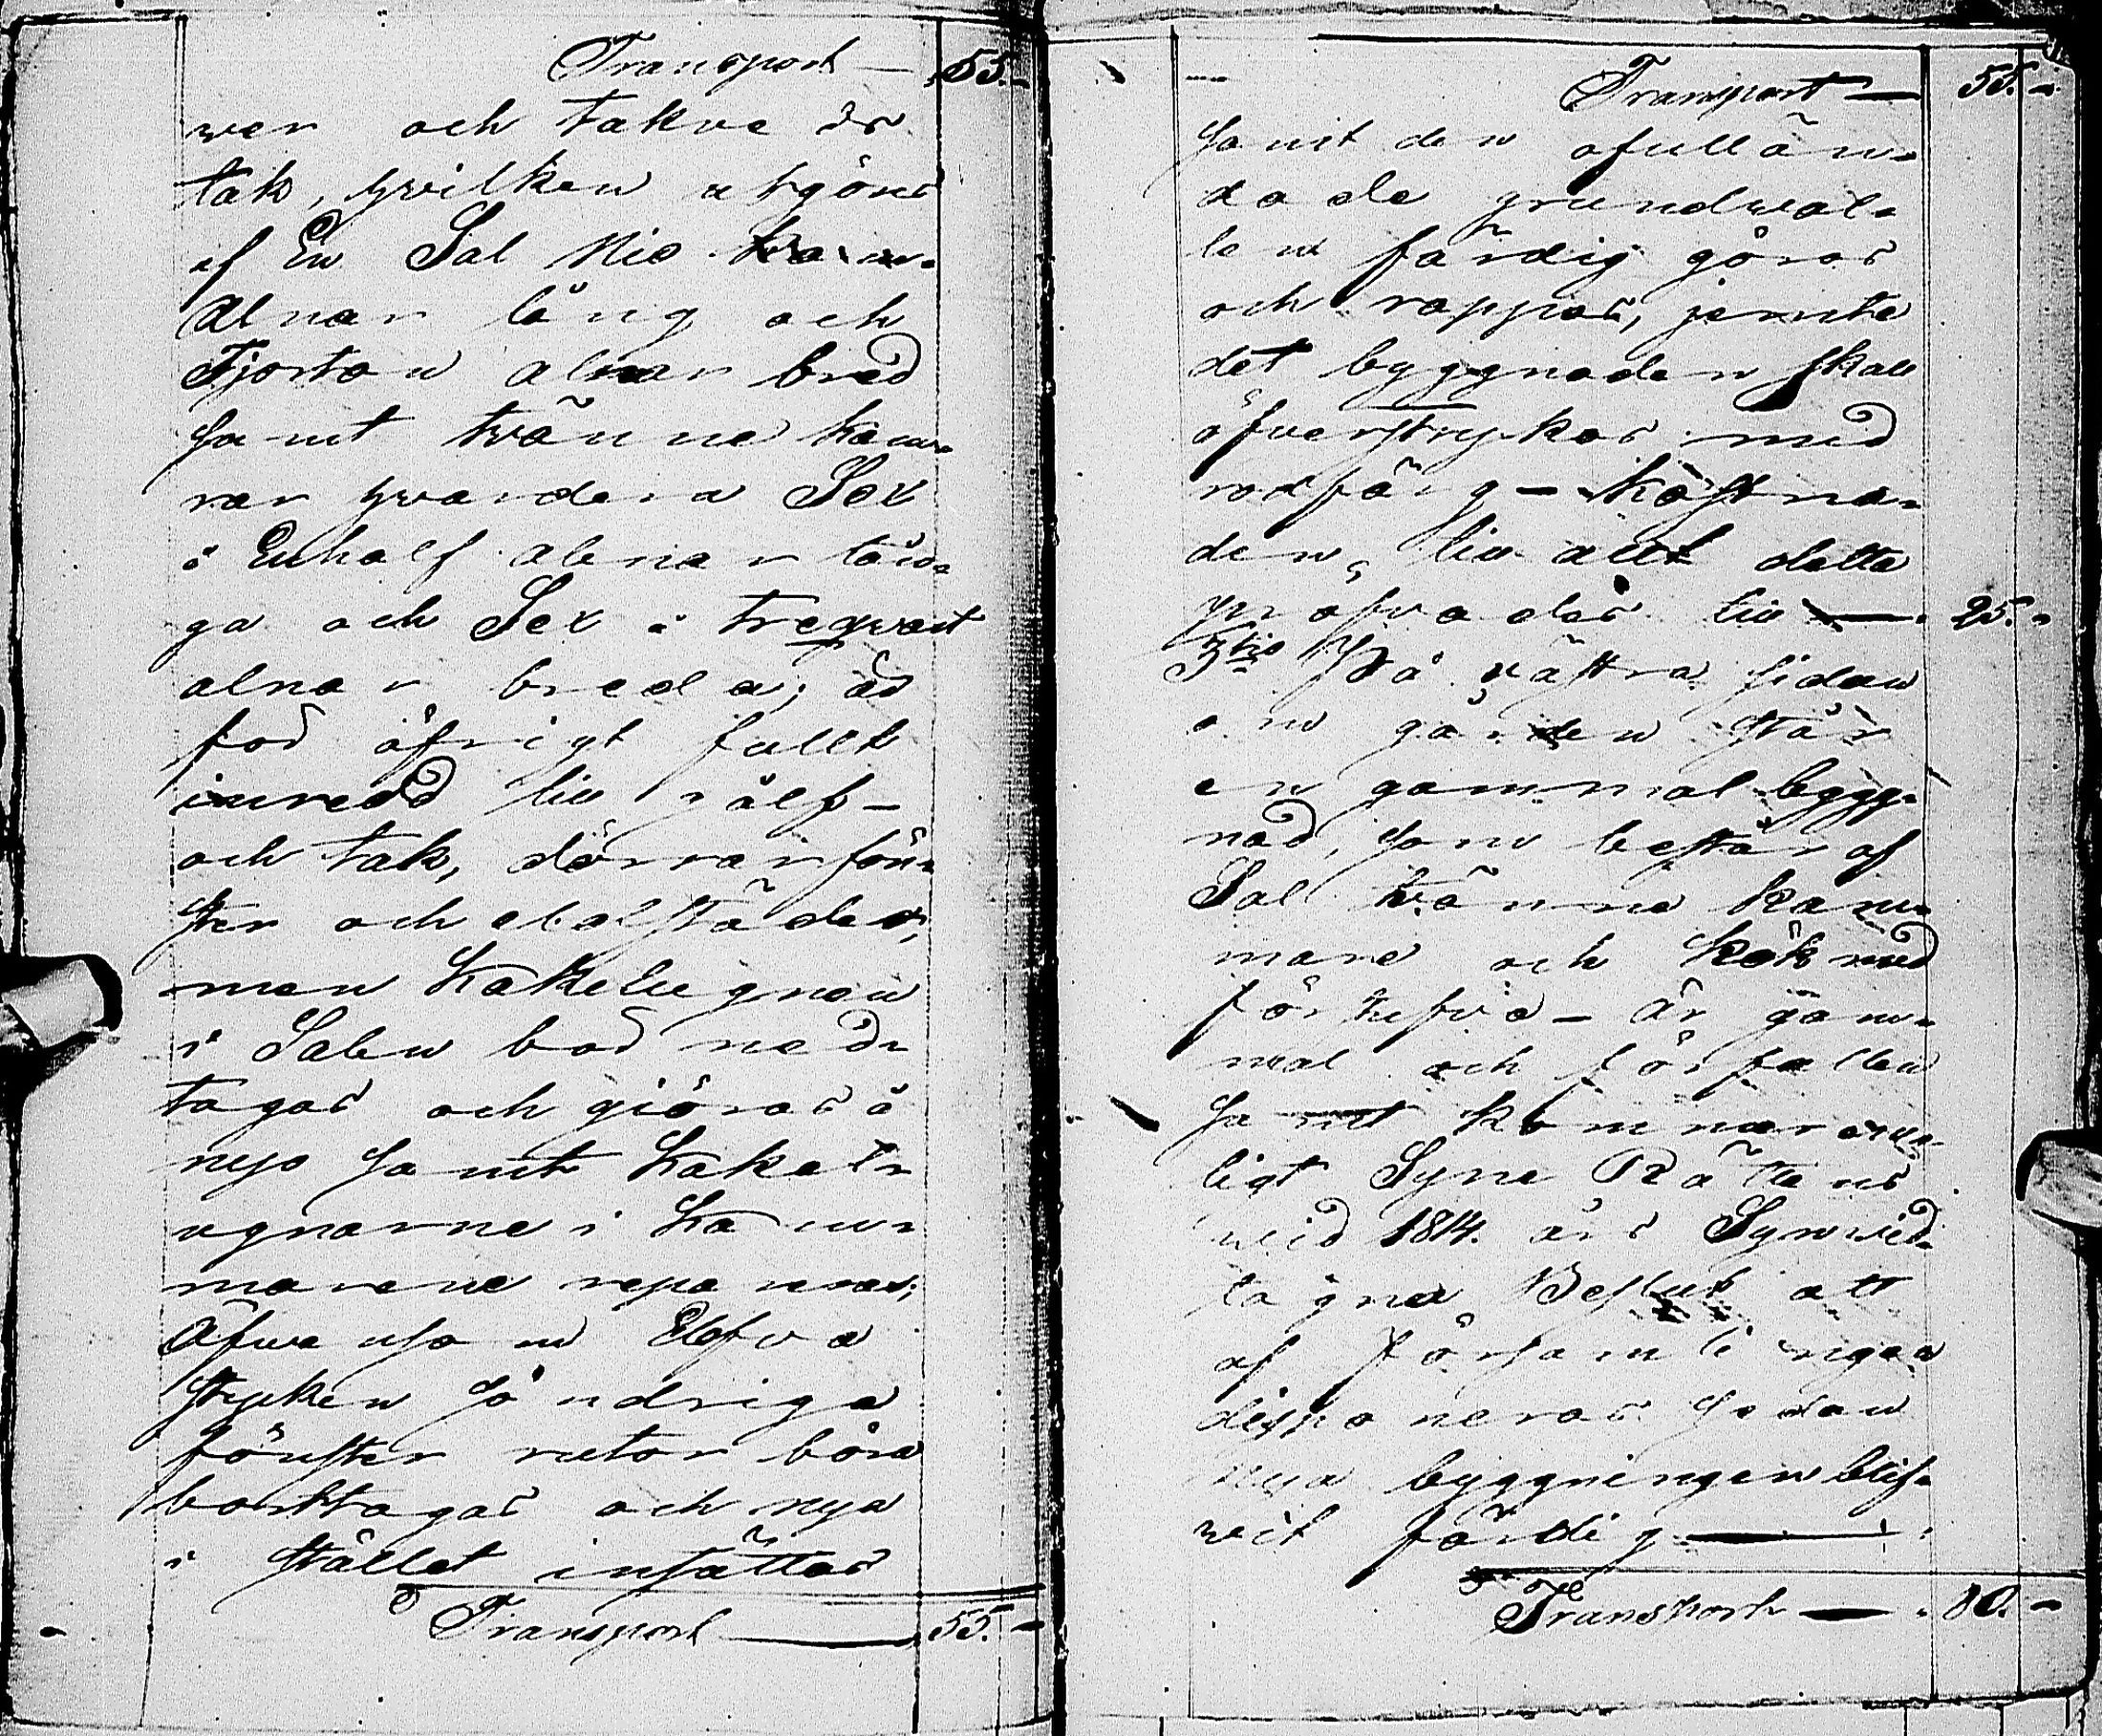 Transport — 55.-
ver och takve är
tak, hvilken utgörs
af En Sal Nio
Alnar lång och
Fjorton alnar bred
samt tvänne kam-
rar hvardera Sex
å Enhalf alnar lån-
ga och Sex å treqvart
alnar breda; är
för öfrigt fullt
inredd till gålf-
och tak, dörrar fön-
ster och elalstäder,
men Kakelugnen
i Salen bör ned-
tagas och giöras å
nyo samt Kakel-
ugnarne i Kam-
marene repareras;
Äfvensom Elofva
stycken söndriga
fönster rutor böra
borttagas och nya
i stället insättas
Transport — 55.-
Transport — 55.-
samt den ofullän-
dade grundval-
len färdig göras
och rappas, jemte
det byggnaden skall
öfverstrykas med
rodfärg — Kostna-
den till allt detta
pröfvades till — 25.-
3tio På västra sidan
om gården står
en gammal bygg-
nad, som består af
Sal tvänne kam-
mare och Kök med
förstufva — är gam-
mal och förfallen
samt kommer en-
ligt Syne Rättens
vid 1814. års Syn vid-
tagna Beslut att
af församlingen
disponeras sedan
nya byggningen blif-
vit färdig —
Transport — 80.-